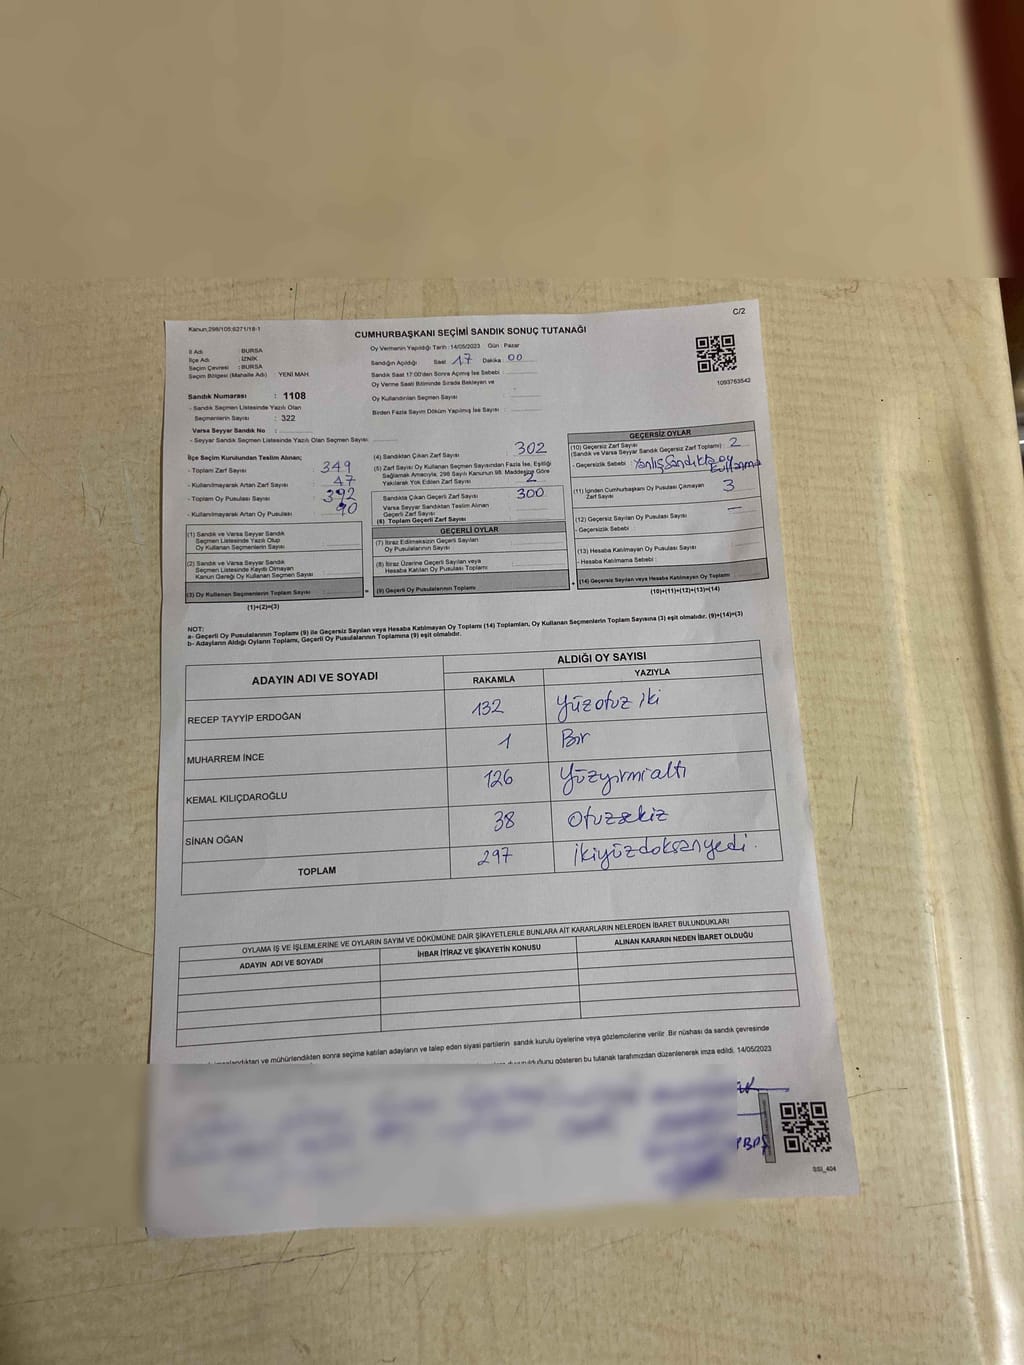 Kanun;298/105;6271/18-1
C/2
CUMHURBAŞKANI SEÇİMİ SANDIK SONUÇ TUTANAĞI
İl Adı : BURSA
İlçe Adı : İZNİK
Seçim Çevresi : BURSA
Seçim Bölgesi (Mahalle Adı) : YENİ MAH.
Sandık Numarası : 1108
- Sandık Seçmen Listesinde Yazılı Olan
Seçmenlerin Sayısı : 322
Varsa Seyyar Sandık No :
- Seyyar Sandık Seçmen Listesinde Yazılı Olan Seçmen Sayısı:
Oy Vermenin Yapıldığı Tarih : 14/05/2023 Gün : Pazar
Sandığın Açıldığı Saat 17 Dakika 00
Sandık Saat 17:00'den Sonra Açımış İse Sebebi :
Oy Verme Saati Bitiminde Sırada Bekleyen ve
Oy Kullandırılan Seçmen Sayısı :
Birden Fazla Sayım Döküm Yapılmış İse Sayısı :
1093763542
İlçe Seçim Kurulundan Teslim Alınan;
- Toplam Zarf Sayısı : 349
- Kullanılmayarak Artan Zarf Sayısı : 47
- Toplam Oy Pusulası Sayısı : 392
- Kullanılmayarak Artan Oy Pusulası : 90
(1) Sandık ve Varsa Seyyar Sandık
Seçmen Listesinde Yazılı Olup
Oy Kullanan Seçmenlerin Sayısı
(2) Sandık ve Varsa Seyyar Sandık
Seçmen Listesinde Kayıtlı Olmayan
Kanun Gereği Oy Kullanan Seçmen Sayısı :
(3) Oy Kullanan Seçmenlerin Toplam Sayısı :
(1)+(2)=(3)
(4) Sandıktan Çıkan Zarf Sayısı : 302
(5) Zarf Sayısı Oy Kullanan Seçmen Sayısından Fazla İse, Eşitliği
Sağlamak Amacıyla, 298 Sayılı Kanunun 98. Maddesine Göre
Yakılarak Yok Edilen Zarf Sayısı : 2
Sandıkta Çıkan Geçerli Zarf Sayısı : 300
Varsa Seyyar Sandıktan Teslim Alınan
Geçerli Zarf Sayısı
(6) Toplam Geçerli Zarf Sayısı
GEÇERLİ OYLAR
(7) İtiraz Edilmeksizin Geçerli Sayılan
Oy Pusulalarının Sayısı
(8) İtiraz Üzerine Geçerli Sayılan veya
Hesaba Katılan Oy Pusulası Toplamı
(9) Geçerli Oy Pusulalarının Toplamı
GEÇERSİZ OYLAR
(10) Geçersiz Zarf Sayısı
(Sandık ve Varsa Seyyar Sandık Geçersiz Zarf Toplamı) : 2
- Geçersizlik Sebebi : Yanlış Sandıkta oy
kullanma
(11) İçinden Cumhurbaşkanı Oy Pusulası Çıkmayan
Zarf Sayısı 3
(12) Geçersiz Sayılan Oy Pusulası Sayısı : —
- Geçersizlik Sebebi :
(13) Hesaba Katılmayan Oy Pusulası Sayısı :
- Hesaba Katılmama Sebebi :
(14) Geçersiz Sayılan veya Hesaba Katılmayan Oy Toplamı
(10)+(11)+(12)+(13)=(14)
NOT:
a- Geçerli Oy Pusulalarının Toplamı (9) ile Geçersiz Sayılan veya Hesaba Katılmayan Oy Toplamı (14) Toplamları, Oy Kullanan Seçmenlerin Toplam Sayısına (3) eşit olmalıdır. (9)+(14)=(3)
b- Adayların Aldığı Oyların Toplamı, Geçerli Oy Pusulalarının Toplamına (9) eşit olmalıdır.
ADAYIN ADI VE SOYADI
ALDIĞI OY SAYISI
RAKAMLA YAZIYLA
RECEP TAYYİP ERDOĞAN 132 Yüzotuz iki
MUHARREM İNCE 1 Bir
KEMAL KILIÇDAROĞLU 126 Yüzyirmialtı
SİNAN OĞAN 38 Otuzsekiz
TOPLAM 297 İkiyüzdoksanyedi.
OYLAMA İŞ VE İŞLEMLERİNE VE OYLARIN SAYIM VE DÖKÜMÜNE DAİR ŞİKAYETLERLE BUNLARA AİT KARARLARIN NELERDEN İBARET BULUNDUKLARI
ADAYIN ADI VE SOYADI İHBAR İTİRAZ VE ŞİKAYETİN KONUSU ALINAN KARARIN NEDEN İBARET OLDUĞU
ve mühürlendikten sonra seçime katılan adayların ve talep eden siyasi partilerin sandık kurulu üyelerine veya gözlemcilerine verilir. Bir nüshası da sandık çevresinde
gösteren bu tutanak tarafımızdan düzenlenerek imza edildi. 14/05/2023
SSI_404